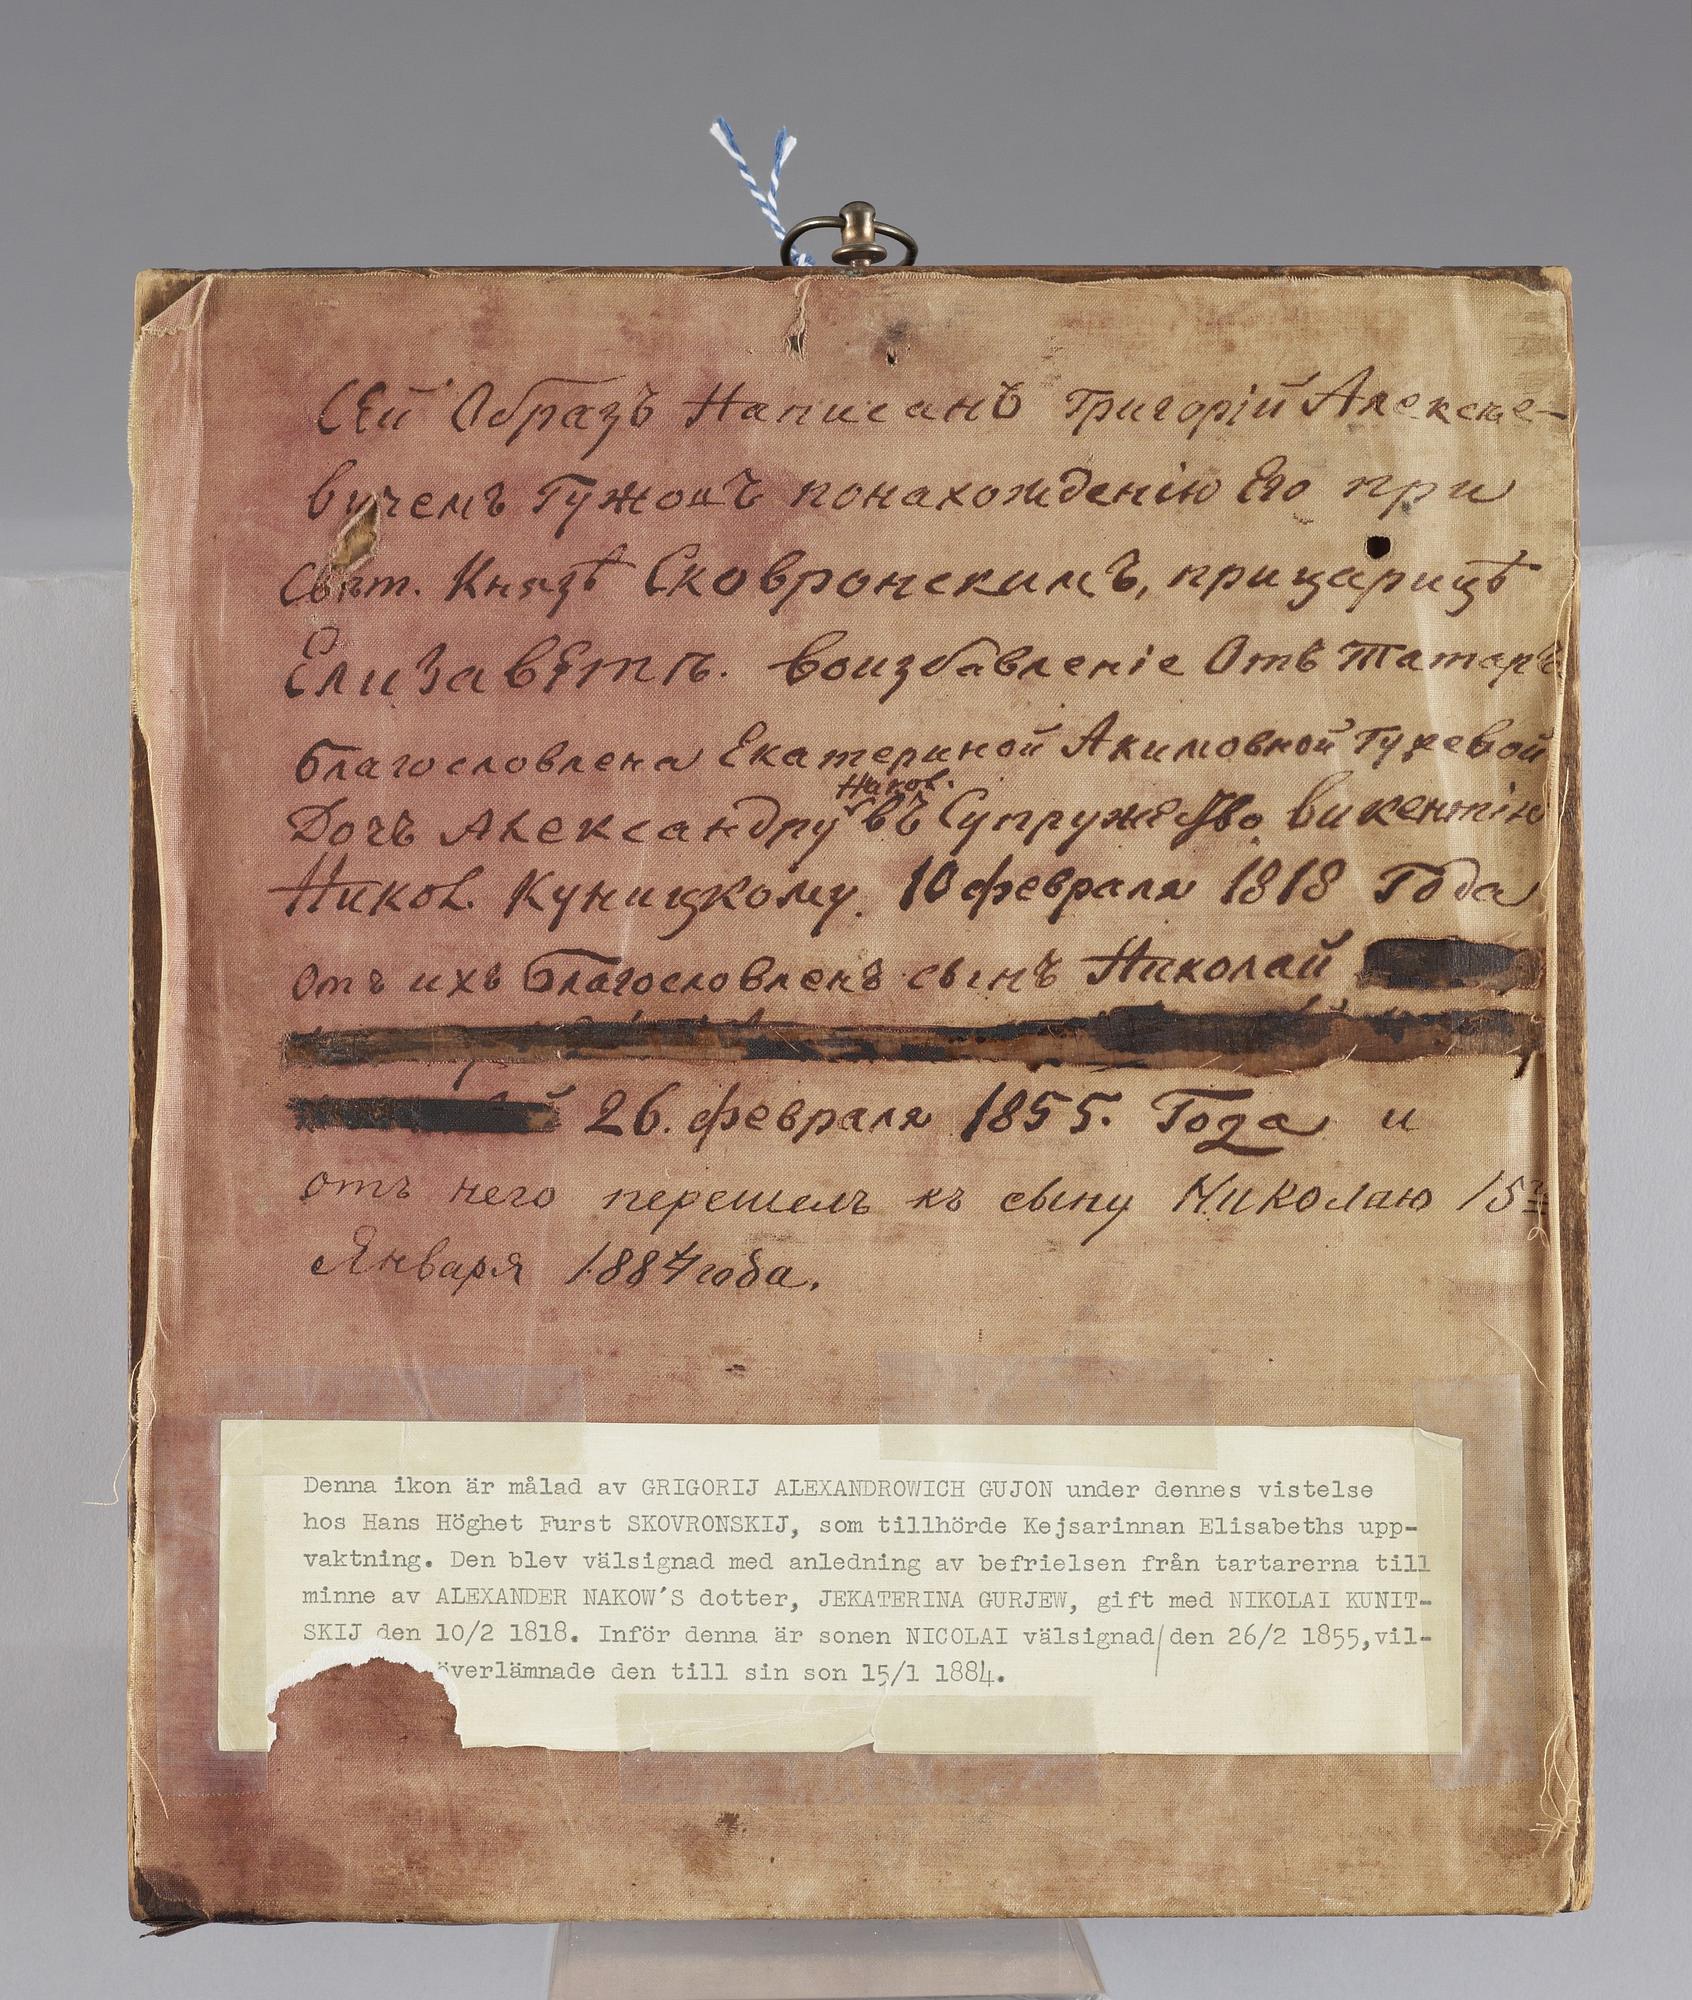 Сей Образъ Написанъ Григорій Алексѣе-
вичемъ Гужонъ понахожденію Его при
Свѣт. Князѣ Сковронскимъ, прицарицѣ
Елизавѣтѣ. воизбавленіе Отъ Татаръ
благословлена Екатериной Акимовной Гурьевой
Наков.
Дочь Александру въ Супружество Викентію
Никол. Куницкому. 10 февраля 1818 Года
отъ ихъ благословленъ сынъ Николай
26. февраля 1855. Года и
отъ него перешелъ къ сыну Николаю 15го
Января 1884 года.
Denna ikon är målad av GRIGORIJ ALEXANDROWICH GUJON under dennes vistelse
hos Hans Höghet Furst SKOVRONSKIJ, som tillhörde Kejsarinnan Elisabeths upp-
vaktning. Den blev välsignad med anledning av befrielsen från tartarerna till
minne av ALEXANDER NAKOW'S dotter, JEKATERINA GURJEW, gift med NIKOLAI KUNIT-
SKIJ den 10/2 1818. Inför denna är sonen NICOLAI välsignad/den 26/2 1855,vil-
överlämnade den till sin son 15/1 1884.